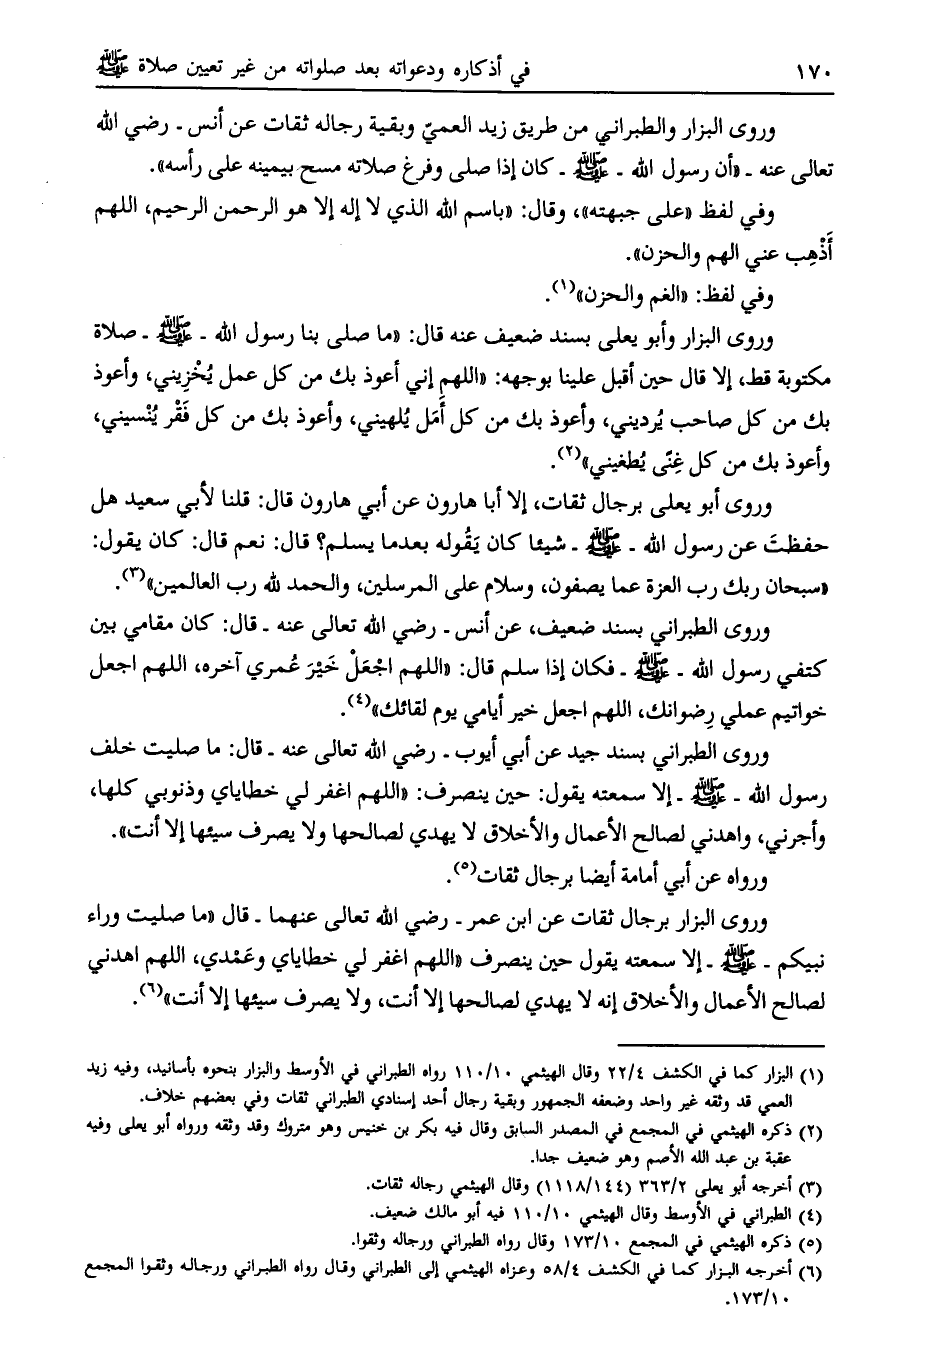 ١٧٠ في أذكاره ودعواته بعد صلواته من غير تعيين صلاة ﷺ
وروى البزار والطبراني من طريق زيد العميّ وبقية رجاله ثقات عن أنس ـ رضي الله
تعالى عنه ـ «أن رسول الله ـ ﷺ ـ كان إذا صلى وفرغ صلاته مسح بيمينه على رأسه».
وفي لفظ «على جبهته»، وقال: «باسم الله الذي لا إله إلا هو الرحمن الرحيم، اللهم
أَذْهِب عني الهم والحزن».
وفي لفظ: «الغم والحزن»(١).
وروى البزار وأبو يعلى بسند ضعيف عنه قال: «ما صلى بنا رسول الله ـ ﷺ ـ صلاة
مكتوبة قط، إلا قال حين أقبل علينا بوجهه: «اللهم إني أعوذ بك من كل عمل يُخْزِيني، وأعوذ
بك من كل صاحب يُرديني، وأعوذ بك من كل أَمَل يُلهيني، وأعوذ بك من كل فَقْر يُنْسيني،
وأعوذ بك من كل غِنًى يُطغيني»(٢).
وروى أبو يعلى برجال ثقات، إلا أبا هارون عن أبي هارون قال: قلنا لأبي سعيد هل
حفظتَ عن رسول الله ـ ﷺ ـ شيئا كان يَقُوله بعدما يسلم؟ قال: نعم قال: كان يقول:
«سبحان ربك رب العزة عما يصفون، وسلام على المرسلين، والحمد لله رب العالمين»(٣).
وروى الطبراني بسند ضعيف، عن أنس ـ رضي الله تعالى عنه ـ قال: كان مقامي بين
كتفي رسول الله ـ ﷺ ـ فكان إذا سلم قال: «اللهم اجْعَلْ خَيْرَ عُمري آخره، اللهم اجعل
خواتيم عملي رِضوانك، اللهم اجعل خير أيامي يوم لقائك»(٤).
وروى الطبراني بسند جيد عن أبي أيوب ـ رضي الله تعالى عنه ـ قال: ما صليت خلف
رسول الله ـ ﷺ ـ إلا سمعته يقول: حين ينصرف: «اللهم اغفر لي خطاياي وذنوبي كلها،
وأجرني، واهدني لصالح الأعمال والأخلاق لا يهدي لصالحها ولا يصرف سيئها إلا أنت».
ورواه عن أبي أمامة أيضا برجال ثقات(٥).
وروى البزار برجال ثقات عن ابن عمر ـ رضي الله تعالى عنهما ـ قال «ما صليت وراء
نبيكم ـ ﷺ ـ إلا سمعته يقول حين ينصرف «اللهم اغفر لي خطاياي وعَمْدي، اللهم اهدني
لصالح الأعمال والأخلاق إنه لا يهدي لصالحها إلا أنت، ولا يصرف سيئها إلا أنت»(٦).
(١) البزار كما في الكشف ٢٢/٤ وقال الهيثمي ١١٠/١٠ رواه الطبراني في الأوسط والبزار بنحوه بأسانيد، وفيه زيد
العمي قد وثقه غير واحد وضعفه الجمهور وبقية رجال أحد إسنادي الطبراني ثقات وفي بعضهم خلاف.
(٢) ذكره الهيثمي في المجمع في المصدر السابق وقال فيه بكر بن خنيس وهو متروك وقد وثقه ورواه أبو يعلى وفيه
عقبة بن عبد الله الأصم وهو ضعيف جدا.
(٣) أخرجه أبو يعلى ٣٦٣/٢ (١١١٨/١٤٤) وقال الهيثمي رجاله ثقات.
(٤) الطبراني في الأوسط وقال الهيثمي ١١٠/١٠ فيه أبو مالك ضعيف.
(٥) ذكره الهيثمي في المجمع ١٧٣/١٠ وقال رواه الطبراني ورجاله وثقوا.
(٦) أخرجه البزار كما في الكشف ٥٨/٤ وعزاه الهيثمي إلى الطبراني وقال رواه الطبراني ورجاله وثقوا المجمع
١٧٣/١٠.